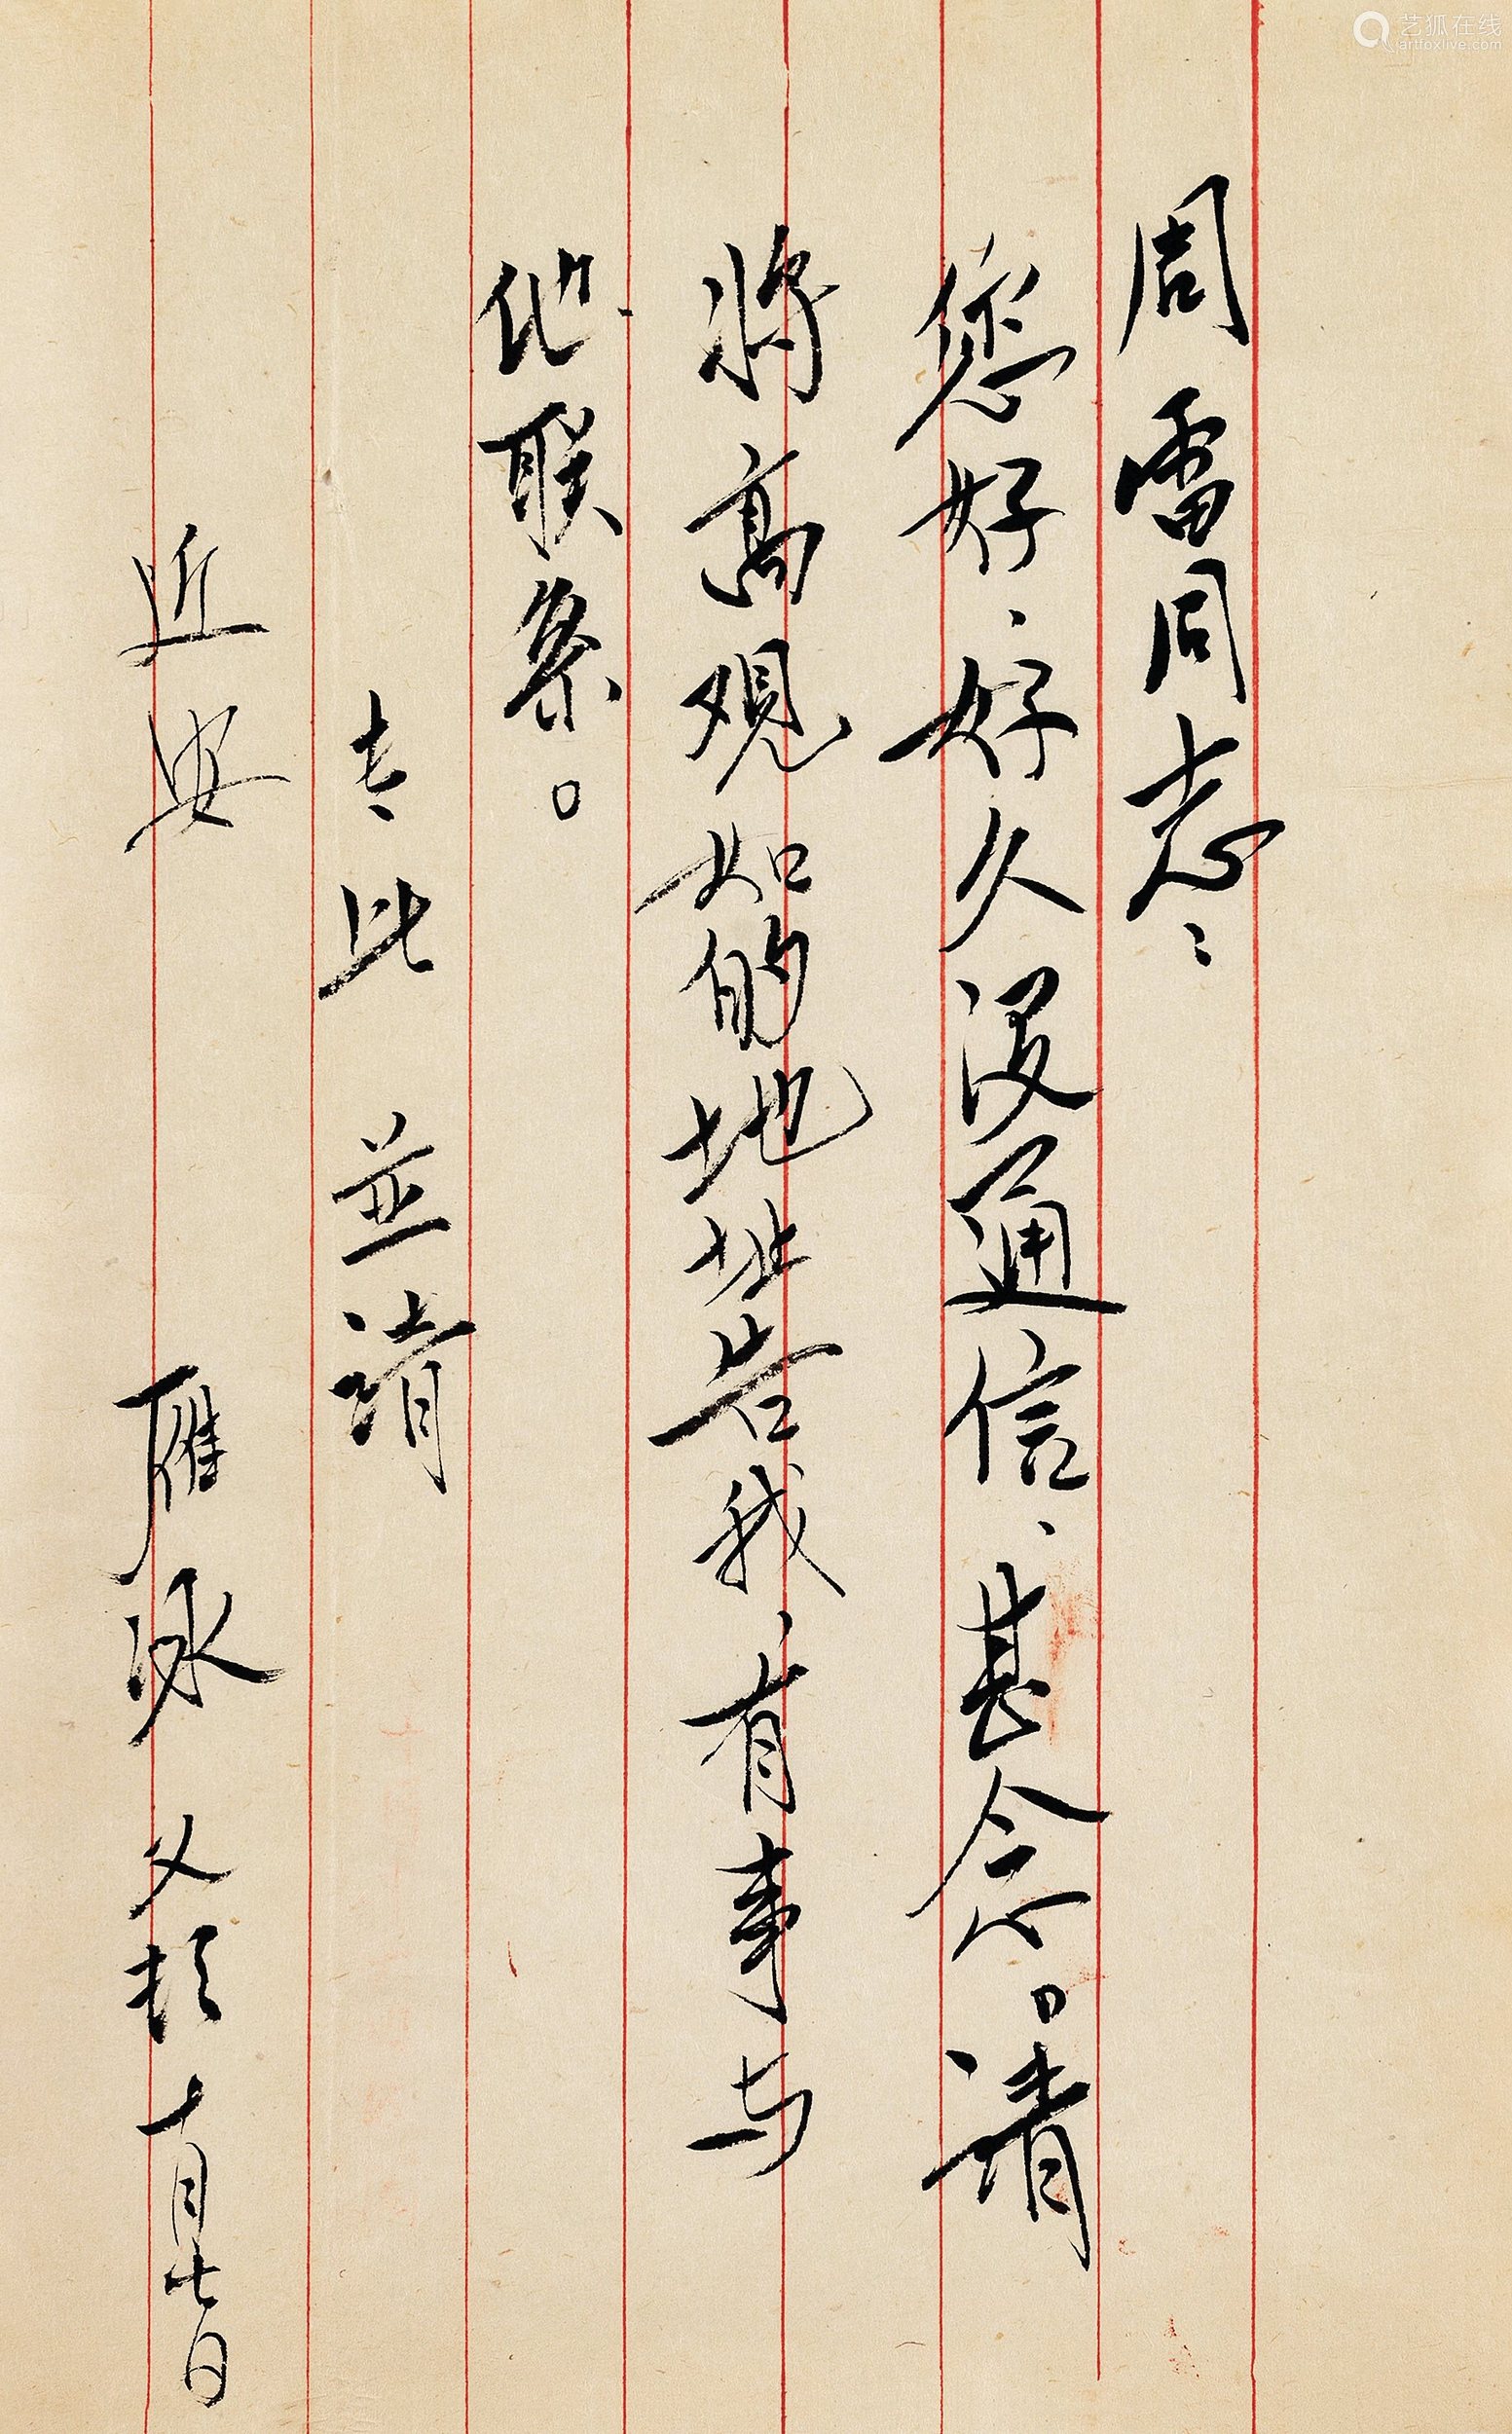 周雷同志：
您好，好久没通信，甚念。请
将高观如的地址告我，有事与
他联系。
专此 並请
近安
雁冰 十月七日
艺狐在线
artfoxlive.com